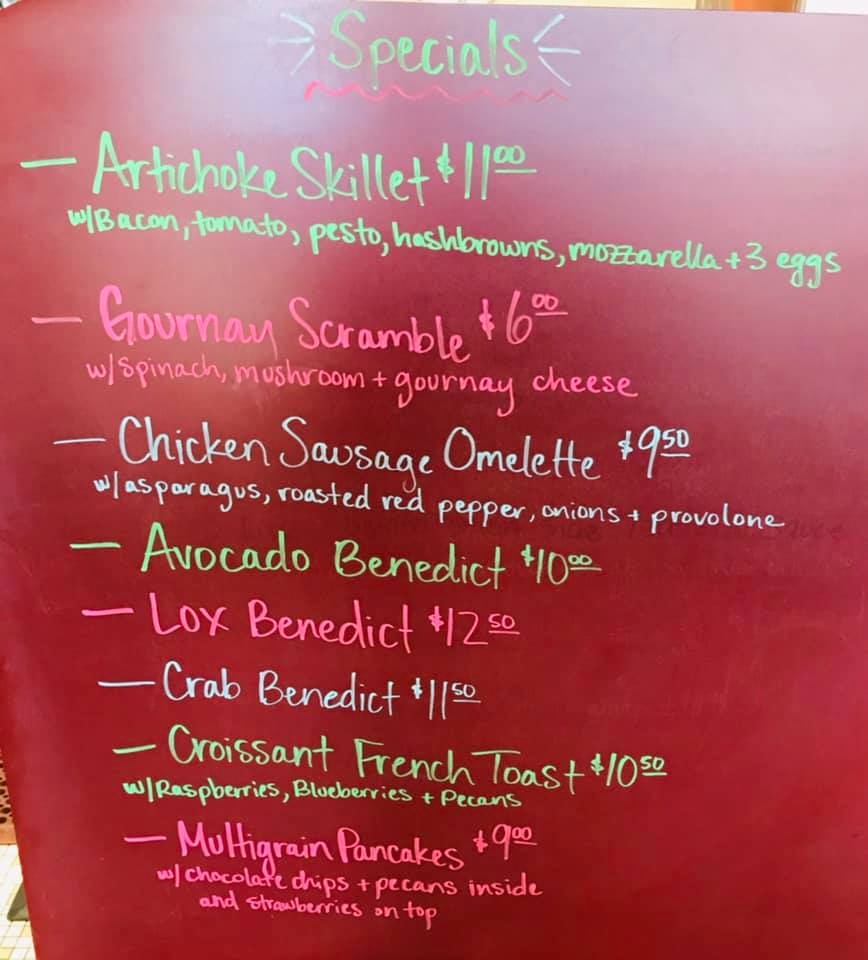 Specials
— Artichoke Skillet $11 00
w/Bacon, tomato, pesto, hashbrowns, mozzarella + 3 eggs
— Gournay Scramble $6 00
w/spinach, mushroom + gournay cheese
— Chicken Sausage Omelette $9 50
w/asparagus, roasted red pepper, onions + provolone
— Avocado Benedict $10 00
— Lox Benedict $12 50
— Crab Benedict $11 50
— Croissant French Toast $10 50
w/Raspberries, Blueberries + Pecans
— Multigrain Pancakes $9 00
w/ chocolate chips + pecans inside
and strawberries on top